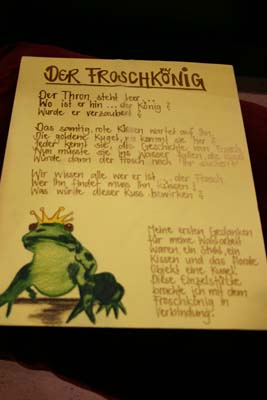 DER FROSCHKÖNIG
Der Thron steht leer...
Wo ist er hin... der König?
Wurde er verzaubert?
Das samtig, rote Kissen wartet auf ihn.
Die goldene Kugel, wo kommt sie her?
Jeder kennt sie, die Geschichte vom Frosch
Nun müsste sie ins Wasser fallen, die Kugel
Würde dann der Frosch noch
Wir wissen alle wer er ist... der Frosch
Wer ihn findet muss ihn küssen!
Was würde dieser Kuss bewirken?
Meine ersten Gedanken
für meine Wahlarbeit
waren, ein Stuhl, ein
Kissen und das florale
Objekt eine Kugel.
Diese Einzelstücke
brachte ich mit dem
Froschkönig in
Verbindung.